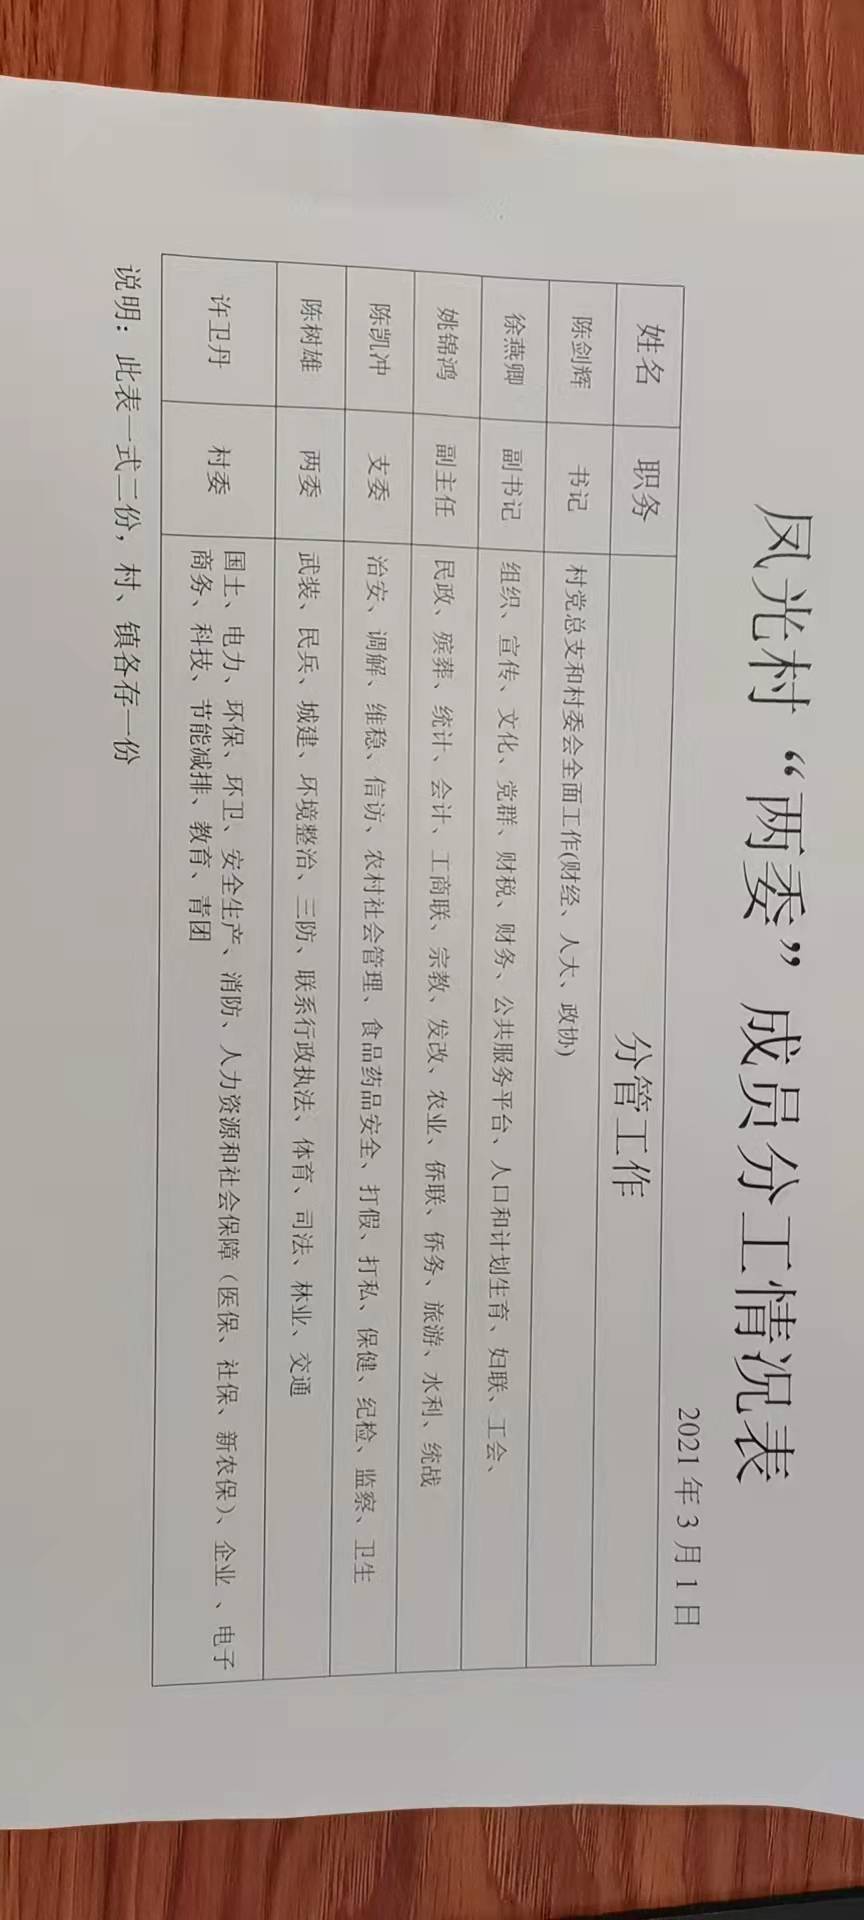 凤光村“两委”成员分工情况表
2021年3月1日
姓名 职务 分管工作
陈剑辉 书记 村党总支和村委会全面工作(财经、人大、政协)
徐燕卿 副书记 组织、宣传、文化、党群、财税、财务、公共服务平台、人口和计划生育、妇联、工会、
姚锦鸿 副主任 民政、殡葬、统计、会计、工商联、宗教、发改、农业、侨联、侨务、旅游、水利、统战
陈凯冲 支委 治安、调解、维稳、信访、农村社会管理、食品药品安全、打假、打私、保健、纪检、监察、卫生
陈树雄 两委 武装、民兵、城建、环境整治、三防、联系行政执法、体育、司法、林业、交通
许卫丹 村委 国土、电力、环保、环卫、安全生产、消防、人力资源和社会保障（医保、社保、新农保）、企业、电子
商务、科技、节能减排、教育、青团
说明：此表一式二份，村、镇各存一份